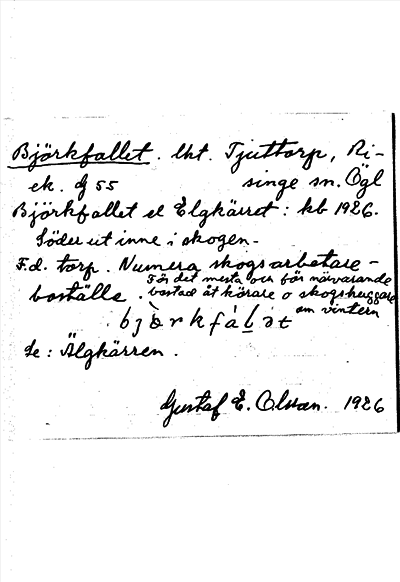 Björkfallet. lht. Tjuttorp, Ri-
ek. g 55 singe sn. Ögl
Björkfallet el Elgkärret: kb 1926.
Söder ut inne i skogen.
F.d. torp. Numera skogsarbetare-
För det mesta och för närvarande
boställe. bostad åt körare o skogshuggare
om vintern
bjὲrkfáḷət
se: Älgkärren.
Gustaf E. Olsson. 1926